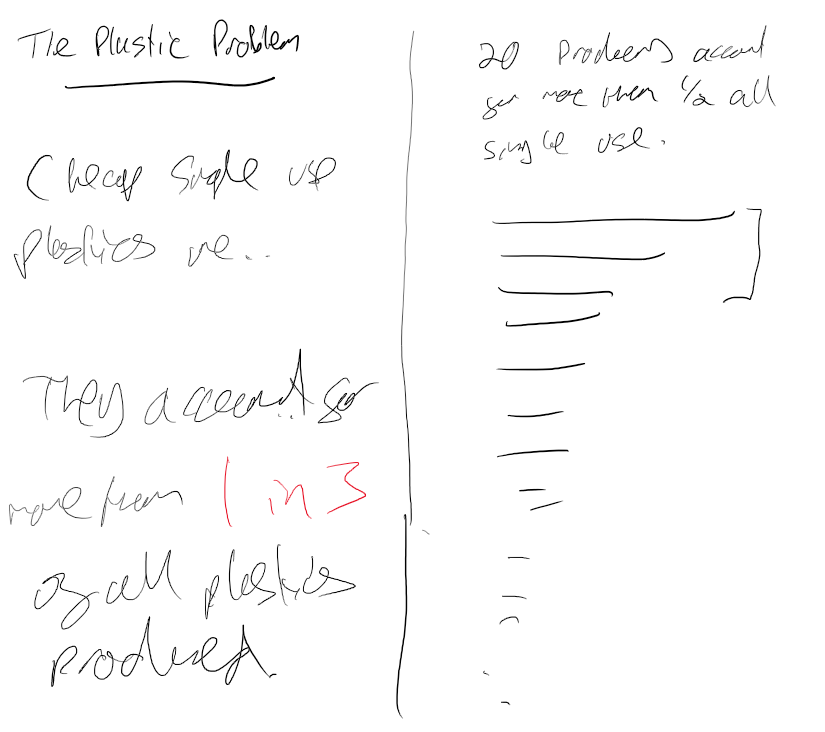 The Plastic Problem
Cheap Single use
plastics are..
They account for
more than 1 in 3
of all plastics
produced.
20 Producers account
for more then 1/2 all
single use.